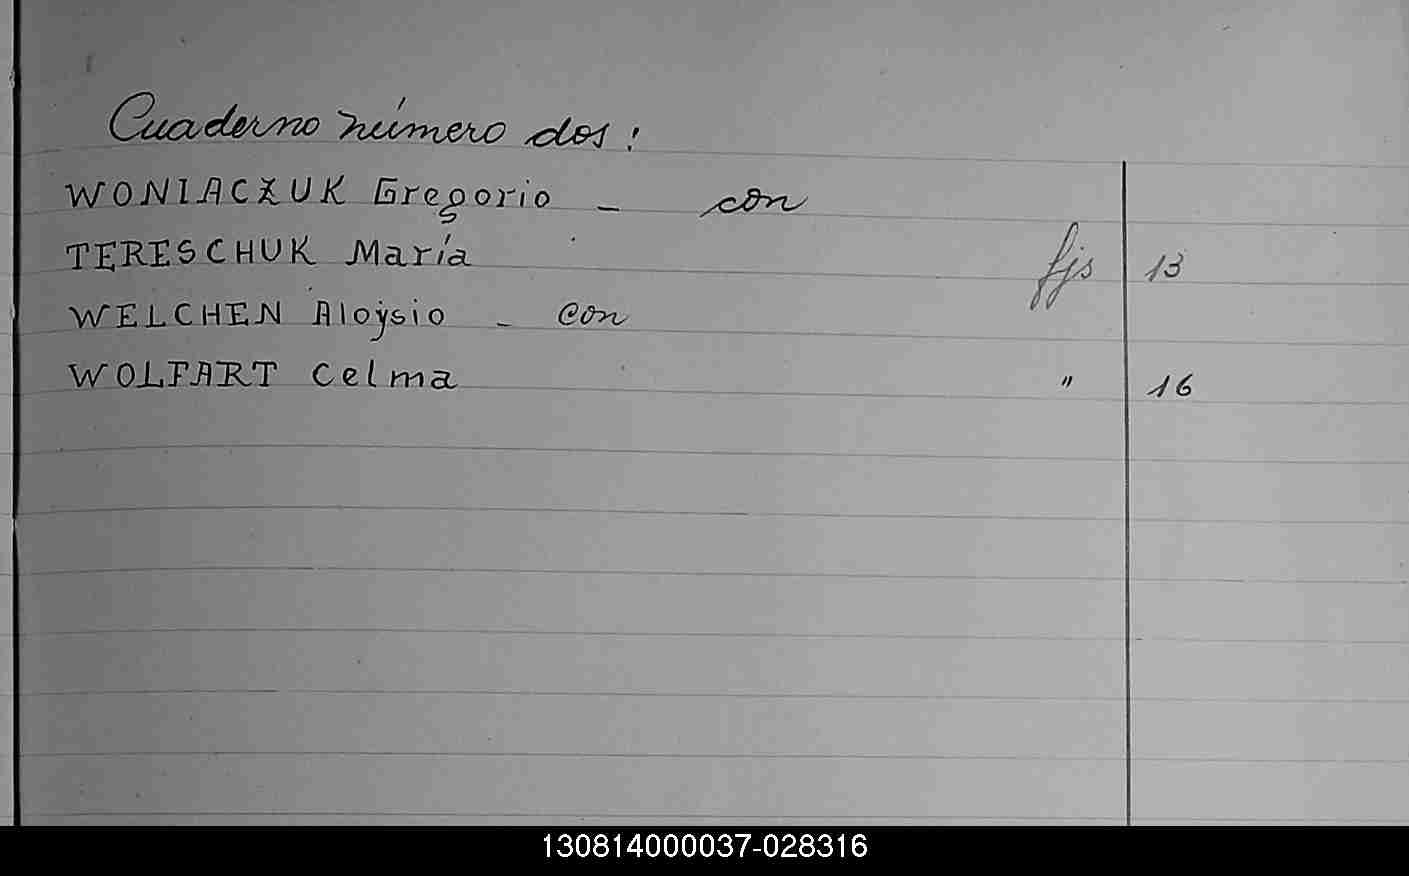 Cuaderno número dos:
WONIACZUK Gregorio - con
TERESCHUK María fjs 13
WELCHEN Aloysio - con
WOLFART Celma " 16
130814000037-028316